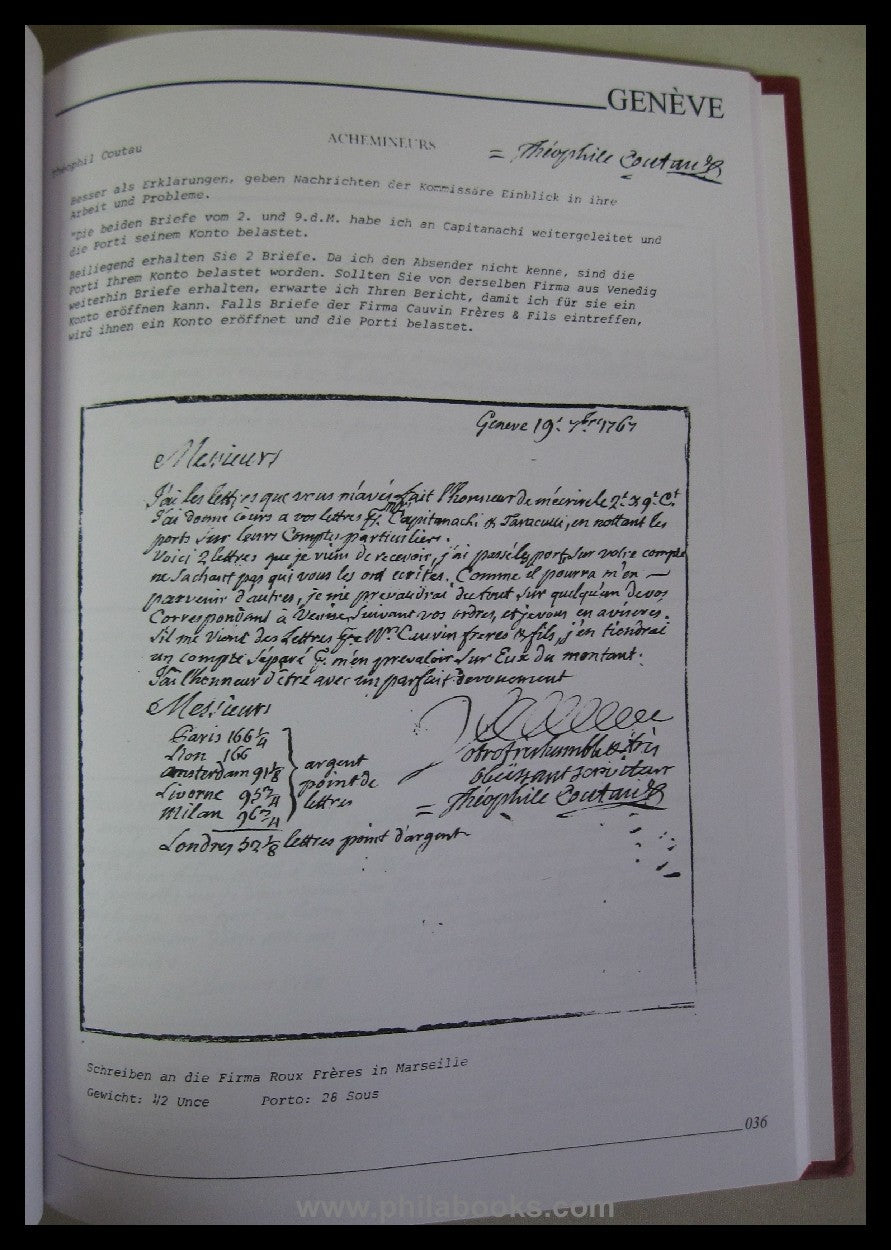 GENÈVE
Théophil Coutau
ACHEMINEURS
= Théophile Coutau
Besser als Erklärungen, geben Nachrichten der Kommissäre Einblick in ihre
Arbeit und Probleme.
"Die beiden Briefe vom 2. und 9.d.M. habe ich an Capitanachi weitergeleitet und
die Porti seinem Konto belastet.
Beiliegend erhalten Sie 2 Briefe. Da ich den Absender nicht kenne, sind die
Porti Ihrem Konto belastet worden. Sollten Sie von derselben Firma aus Venedig
weiterhin Briefe erhalten, erwarte ich Ihren Bericht, damit ich für sie ein
Konto eröffnen kann. Falls Briefe der Firma Cauvin Frères & Fils eintreffen,
wird ihnen ein Konto eröffnet und die Porti belastet.
Geneve 19e 7bre 1767
Messieurs
J'ai les lettres que vous m'avés fait l'honneur de m'écrire le 2e & 9e Ct
J'ai donné cours a vos lettres Capitanachi & en nottant les
ports sur leurs Comptes particuliers.
Voici 2 lettres que je viens de recevoir, j'ai passé les ports sur votre compte
ne sachant pas qui vous les ont ecrites. Comme il pourra m'en
parvenir d'autres, je me prevaudrai du tout sur quelqu'un de vos
Correspondans à Venise, suivant vos ordres, et je vous en aviseres.
S'il me vient des Lettres Cauvin freres & fils, j'en tiendrai
un compte séparé m'en prevaloir sur Eux du montant.
J'ai l'honneur d'être avec un parfait devouement
Messieurs
Paris 166 1/4
Lion 166
Amsterdam 91 1/8
Livorne 95 3/4
Milan 96 3/4
argent
point de
lettres
Votre tres humble & très
obeissant serviteur
= Théophile Coutau
Londres 52 1/8 lettres point d'argent
Schreiben an die Firma Roux Frères in Marseille
Gewicht: 1/2 Unce Porto: 28 Sous
036
www.philabooks.com